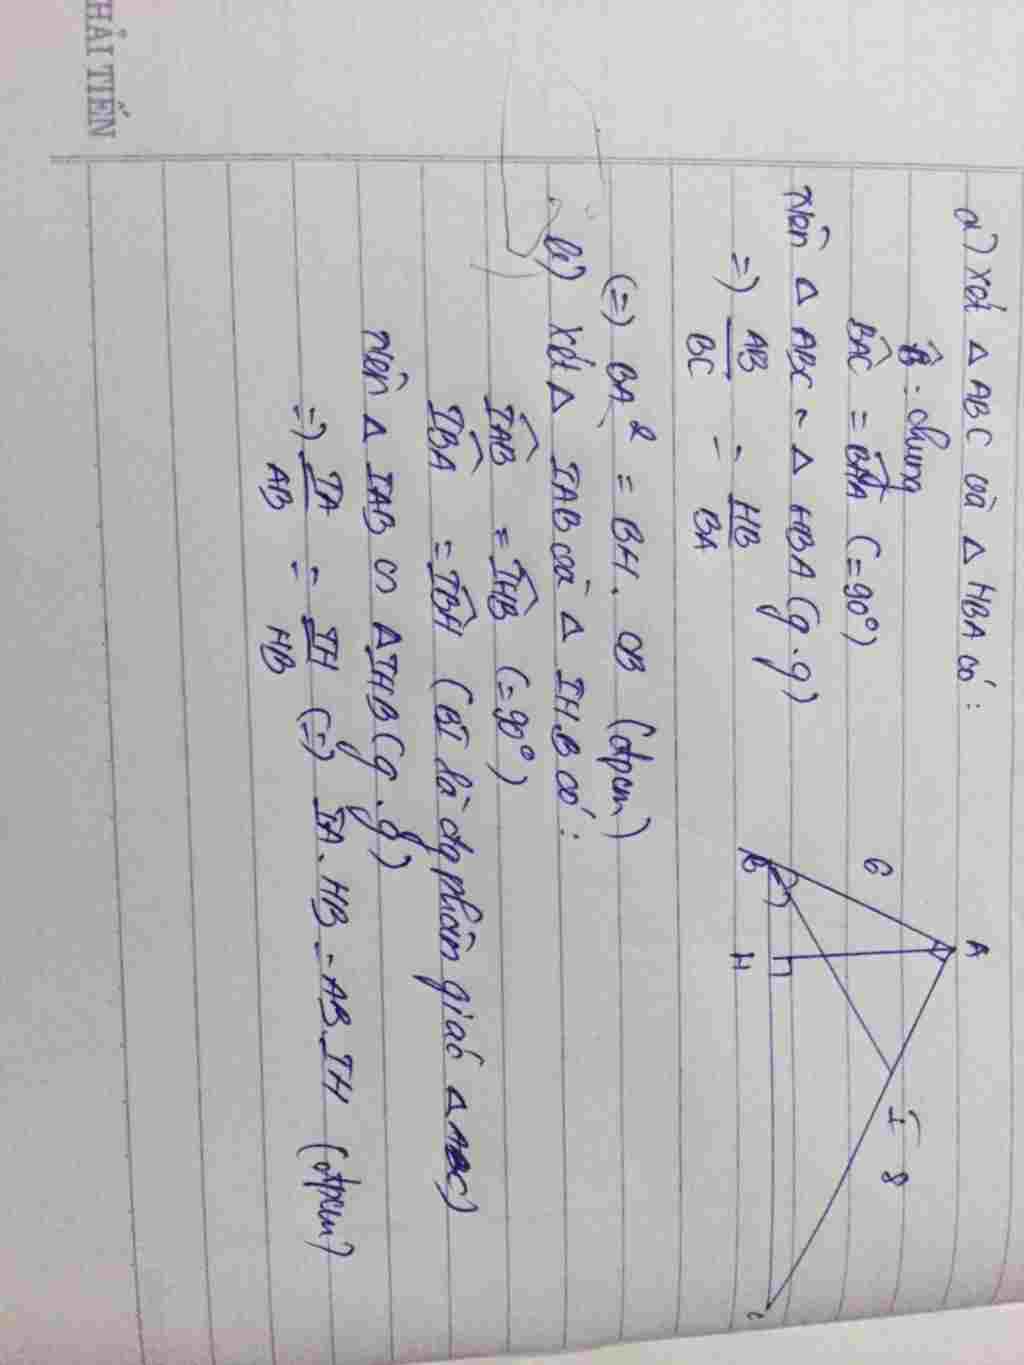 HẢI TIẾN
a) xét Δ ABC và Δ HBA có:
B̂ : chung
BAC = BHA (=90°)
Nên Δ ABC ~ Δ HBA (g.g)
=) AB/BC = HB/BA
(=) BA² = BH. CB (đpcm)
b) xét Δ IAB và Δ IHB có:
IAB = IHB (=90°)
IBA = IBH (BI là đg phân giác Δ ABC)
Nên Δ IAB ∽ ΔIHB (g.g)
=) IA/AB = IH/HB (=) IA. HB = AB. IH (đpcm)
A
6
I 8
B H C